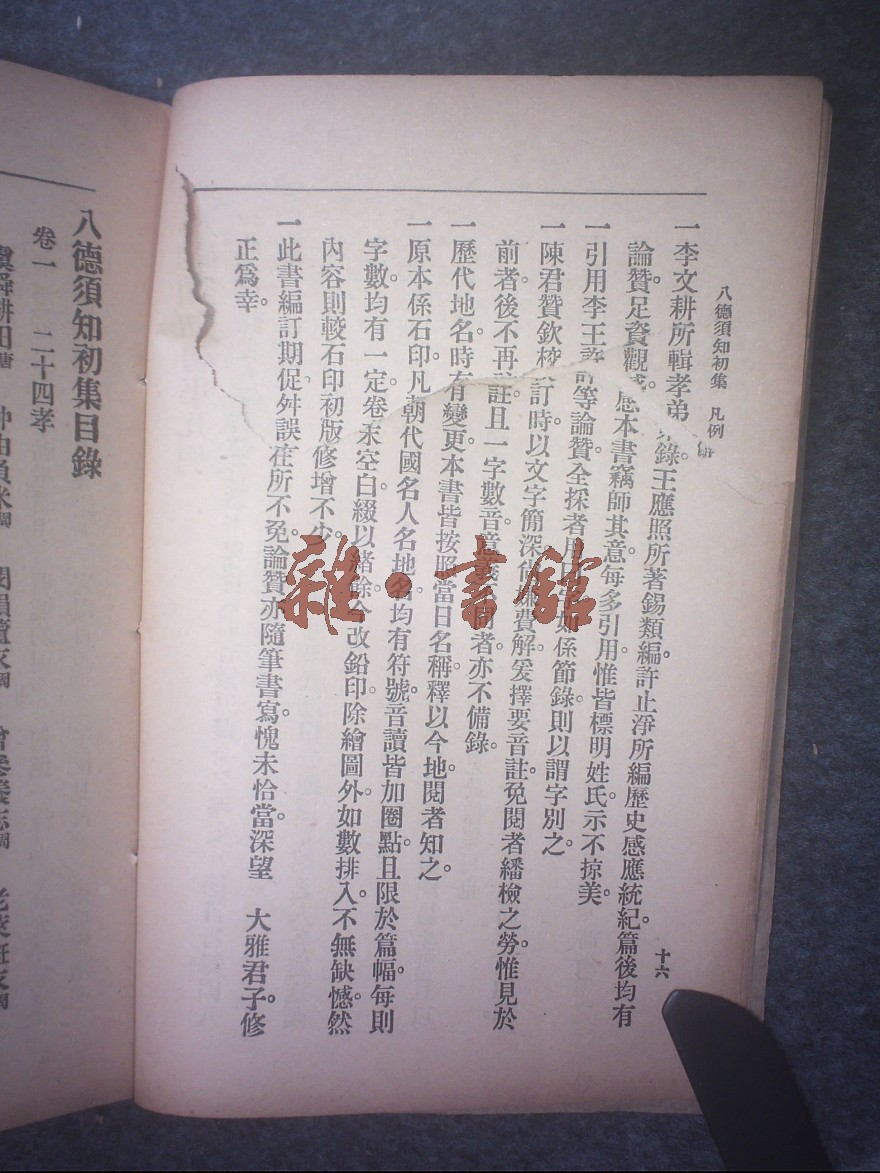 八德須知初集　凡例
十六
一李文耕所輯孝弟錄。王應照所著錫類編。許止淨所編歷史感應統紀。篇後均有
論贊。足資觀感。本書竊師其意。每多引用。惟皆標明姓氏。示不掠美
一引用李王許等論贊。全採者用曰字。如係節錄。則以謂字別之。
一陳君贊欽校訂時。以文字簡深。費解。爰擇要音註。免閱者繙檢之勞。惟見於
前者。後不再註。且一字數音。意義不同者。亦不備錄。
一歷代地名。時有變更。本書皆按照當日名稱。釋以今地。閱者知之。
一原本係石印。凡朝代國名人名地名。均有符號。音讀皆加圈點。且限於篇幅。每則
字數均有一定。卷末空白。綴以緒餘。今改鉛印。除繪圖外。如數排入。不無缺憾。然
內容則較石印初版修增不少。
一此書編訂期促。舛誤在所不免。論贊亦隨筆書寫。愧未恰當。深望　大雅君子。修
正爲幸。
八德須知初集目錄
卷一　二十四孝
雜·書館